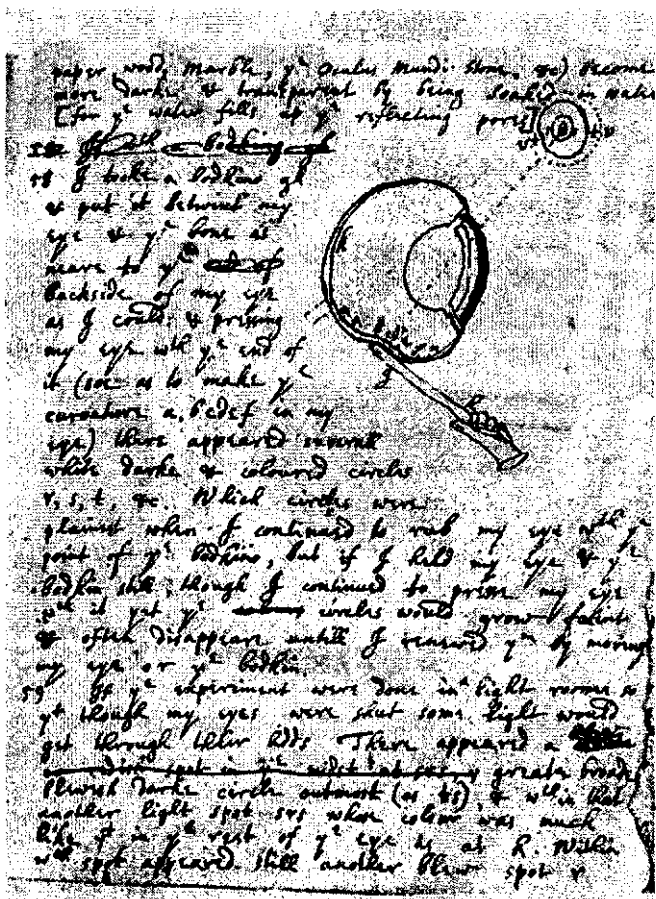 paper wood, marble, yᵉ Oculus Mundi stone, &c) become
more darke & transparent by being soaked in water
[for yᵉ water fills up yᵉ reflecting pores]
58 I tooke a bodkine gh
& put it betwixt my
eye & yᵉ bone as
neare to yᵉ
backside of my eye
as I could: & pressing
my eye wᵗʰ yᵉ end of
it (soe as to make yᵉ
curvature a, bcdef in my
eye) there appeared severall
white darke & coloured circles
r, s, t, &c. Which circles were
plainest when I continued to rub my eye wᵗʰ yᵉ
point of yᵉ bodkine, but if I held my eye & yᵉ
bodkin still, though I continued to presse my eye
wᵗʰ it yet yᵉ circles would grow faint
& often disappeare untill I renewed yᵐ by moving
my eye or yᵉ bodkin.
59 If yᵉ experiment were done in a light roome so
yᵗ though my eyes were shut some light would
get through their lidds There appeared a
greate broade
blewish darke circle outmost (as ts), & wᵗʰin that
another light spot srs whose colour was much
like yᵗ in yᵉ rest of yᵉ eye as at k. Within
wᶜʰ spot appeared still another blew spot r